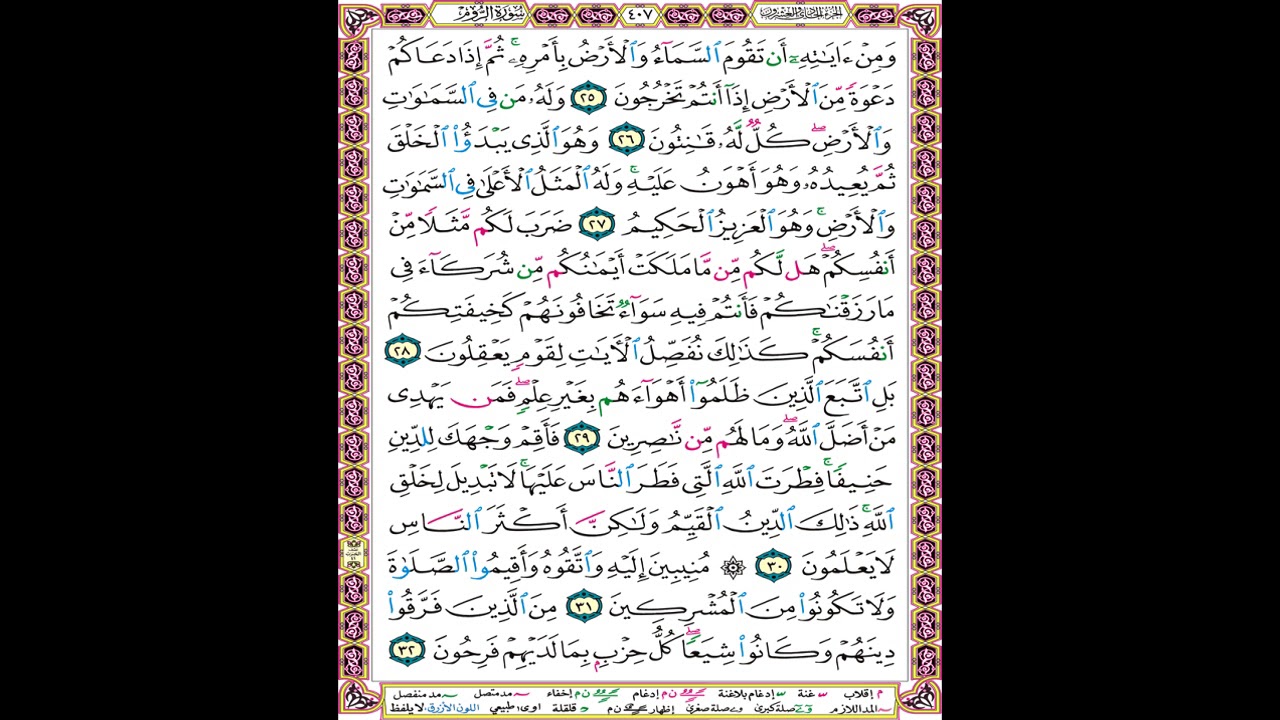 سُورَةُ الرُّومِ
٤٠٧
الجزء الحادي والعشرون
وَمِنْ ءَايَٰتِهِۦٓ أَن تَقُومَ ٱلسَّمَآءُ وَٱلْأَرْضُ بِأَمْرِهِۦ ۚ ثُمَّ إِذَا دَعَاكُمْ
دَعْوَةً مِّنَ ٱلْأَرْضِ إِذَآ أَنتُمْ تَخْرُجُونَ ٢٥ وَلَهُۥ مَن فِى ٱلسَّمَٰوَٰتِ
وَٱلْأَرْضِ ۖ كُلٌّ لَّهُۥ قَٰنِتُونَ ٢٦ وَهُوَ ٱلَّذِى يَبْدَؤُا۟ ٱلْخَلْقَ
ثُمَّ يُعِيدُهُۥ وَهُوَ أَهْوَنُ عَلَيْهِ ۚ وَلَهُ ٱلْمَثَلُ ٱلْأَعْلَىٰ فِى ٱلسَّمَٰوَٰتِ
وَٱلْأَرْضِ ۚ وَهُوَ ٱلْعَزِيزُ ٱلْحَكِيمُ ٢٧ ضَرَبَ لَكُم مَّثَلًا مِّنْ
أَنفُسِكُمْ ۖ هَل لَّكُم مِّن مَّا مَلَكَتْ أَيْمَٰنُكُم مِّن شُرَكَآءَ فِى
مَا رَزَقْنَٰكُمْ فَأَنتُمْ فِيهِ سَوَآءٌ تَخَافُونَهُمْ كَخِيفَتِكُمْ
أَنفُسَكُمْ ۚ كَذَٰلِكَ نُفَصِّلُ ٱلْءَايَٰتِ لِقَوْمٍ يَعْقِلُونَ ٢٨
بَلِ ٱتَّبَعَ ٱلَّذِينَ ظَلَمُوٓا۟ أَهْوَآءَهُم بِغَيْرِ عِلْمٍ ۖ فَمَن يَهْدِى
مَنْ أَضَلَّ ٱللَّهُ ۖ وَمَا لَهُم مِّن نَّٰصِرِينَ ٢٩ فَأَقِمْ وَجْهَكَ لِلدِّينِ
حَنِيفًا ۚ فِطْرَتَ ٱللَّهِ ٱلَّتِى فَطَرَ ٱلنَّاسَ عَلَيْهَا ۚ لَا تَبْدِيلَ لِخَلْقِ
ٱللَّهِ ۚ ذَٰلِكَ ٱلدِّينُ ٱلْقَيِّمُ وَلَٰكِنَّ أَكْثَرَ ٱلنَّاسِ
لَا يَعْلَمُونَ ٣٠ ۞ مُنِيبِينَ إِلَيْهِ وَٱتَّقُوهُ وَأَقِيمُوا۟ ٱلصَّلَوٰةَ
وَلَا تَكُونُوا۟ مِنَ ٱلْمُشْرِكِينَ ٣١ مِنَ ٱلَّذِينَ فَرَّقُوا۟
دِينَهُمْ وَكَانُوا۟ شِيَعًا ۖ كُلُّ حِزْبٍۭ بِمَا لَدَيْهِمْ فَرِحُونَ ٣٢
م إقلاب س غنة س إدغام بلاغنة ن م إدغام ن م إخفاء مد متصل مد منفصل
المد اللازم صلة كبرى صلة صغرى إظهار ن م قلقلة اوى طبيعي اللون الأزرق لا يلفظ